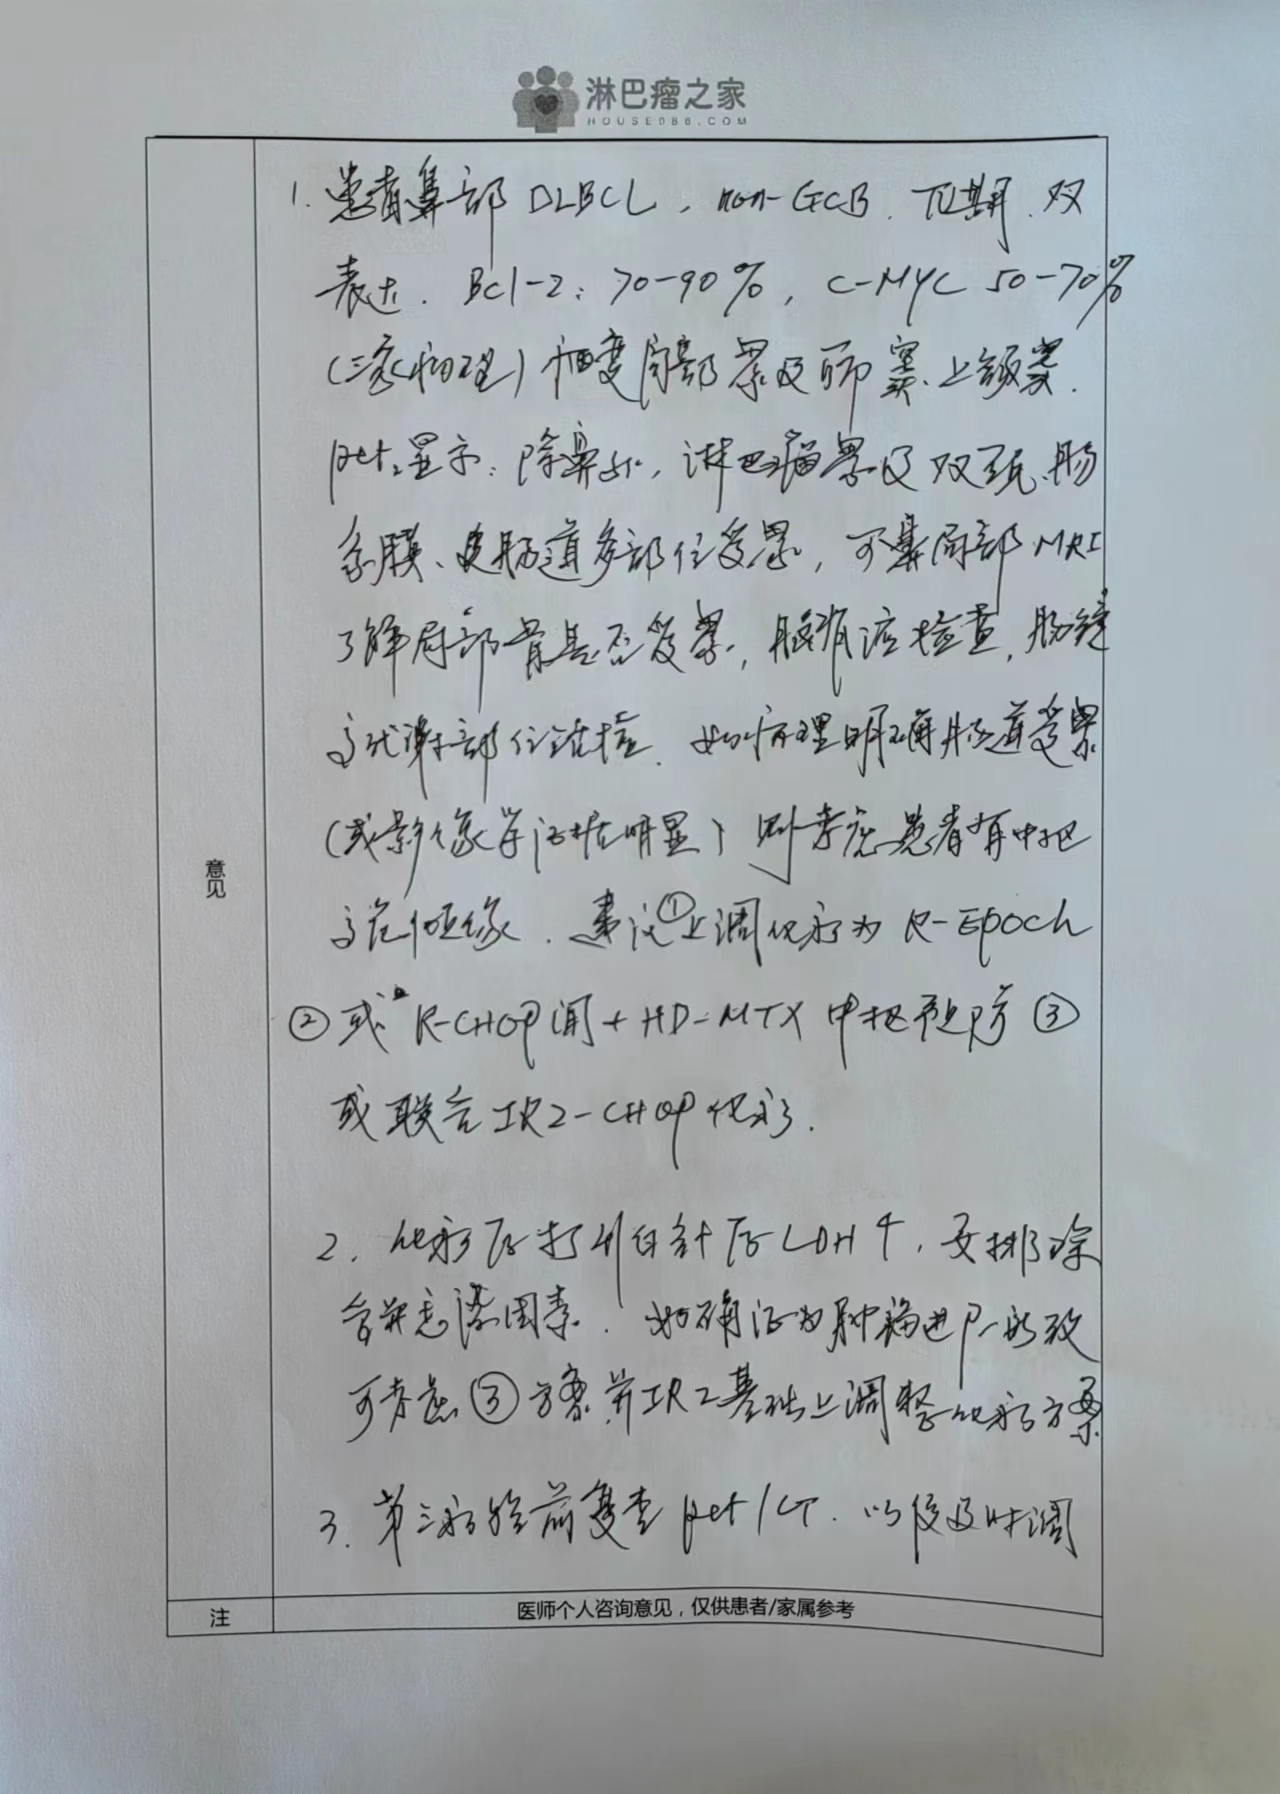 淋巴瘤之家
HOUSE086.COM
意见
1. 患者鼻部 DLBCL, non-GCB. IV期. 双
表达. Bcl-2: 70-90%, C-MYC 50-70%
(三家病理) 病变局部累及筛窦、上颌窦.
pet显示: 除鼻外, 淋巴瘤累及双颈、肠
系膜、及肠道多部位受累, 可鼻局部MRI
了解局部骨是否受累, 脑脊液检查, 肠镜
高代谢部位活检. 如病理明确肠道受累
(或影像学证据明显) 则考虑患者有中枢
高危倾向. 建议①上调化疗为 R-EPOCH
②或 R-CHOP 间+HD-MTX 中枢预防 ③
或联合IR2-CHOP化疗.
2. 化疗后打升白针后LDH↑, 要排除
合并感染因素. 如确证为肿瘤进展所致
可考虑③方案, 并IR2基础上调整化疗方案
3. 第三疗程前复查 pet/CT. 以便及时调
注
医师个人咨询意见，仅供患者/家属参考